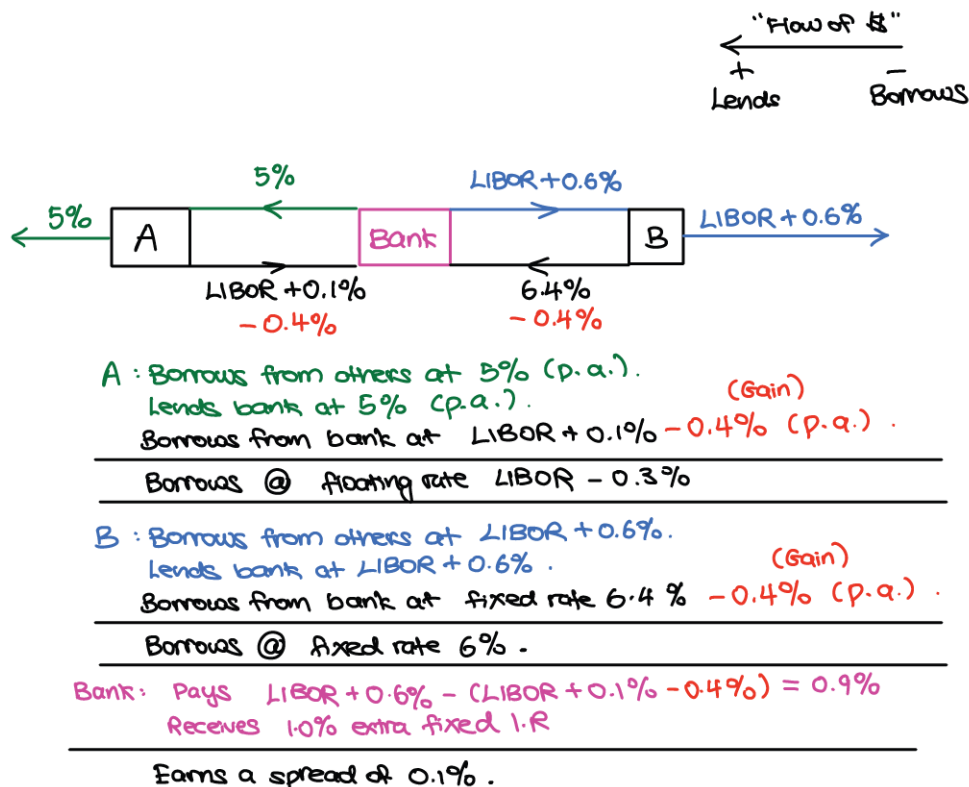 "Flow of $"
+ −
Lends Borrows
5% LIBOR + 0.6%
5% A Bank B LIBOR + 0.6%
LIBOR + 0.1% 6.4%
− 0.4% − 0.4%
A : Borrows from others at 5% (p.a.).
(Gain)
Lends bank at 5% (p.a.).
Borrows from bank at LIBOR + 0.1% − 0.4% (p.a.).
Borrows @ floating rate LIBOR − 0.3%
B : Borrows from others at LIBOR + 0.6%.
(Gain)
Lends bank at LIBOR + 0.6%.
Borrows from bank at fixed rate 6.4% − 0.4% (p.a.).
Borrows @ fixed rate 6%.
Bank: Pays LIBOR + 0.6% − (LIBOR + 0.1% − 0.4%) = 0.9%
Receives 1.0% extra fixed I.R
Earns a spread of 0.1%.